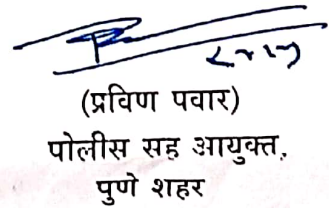 (प्रविण पवार)
पोलीस सह आयुक्त,
पुणे शहर